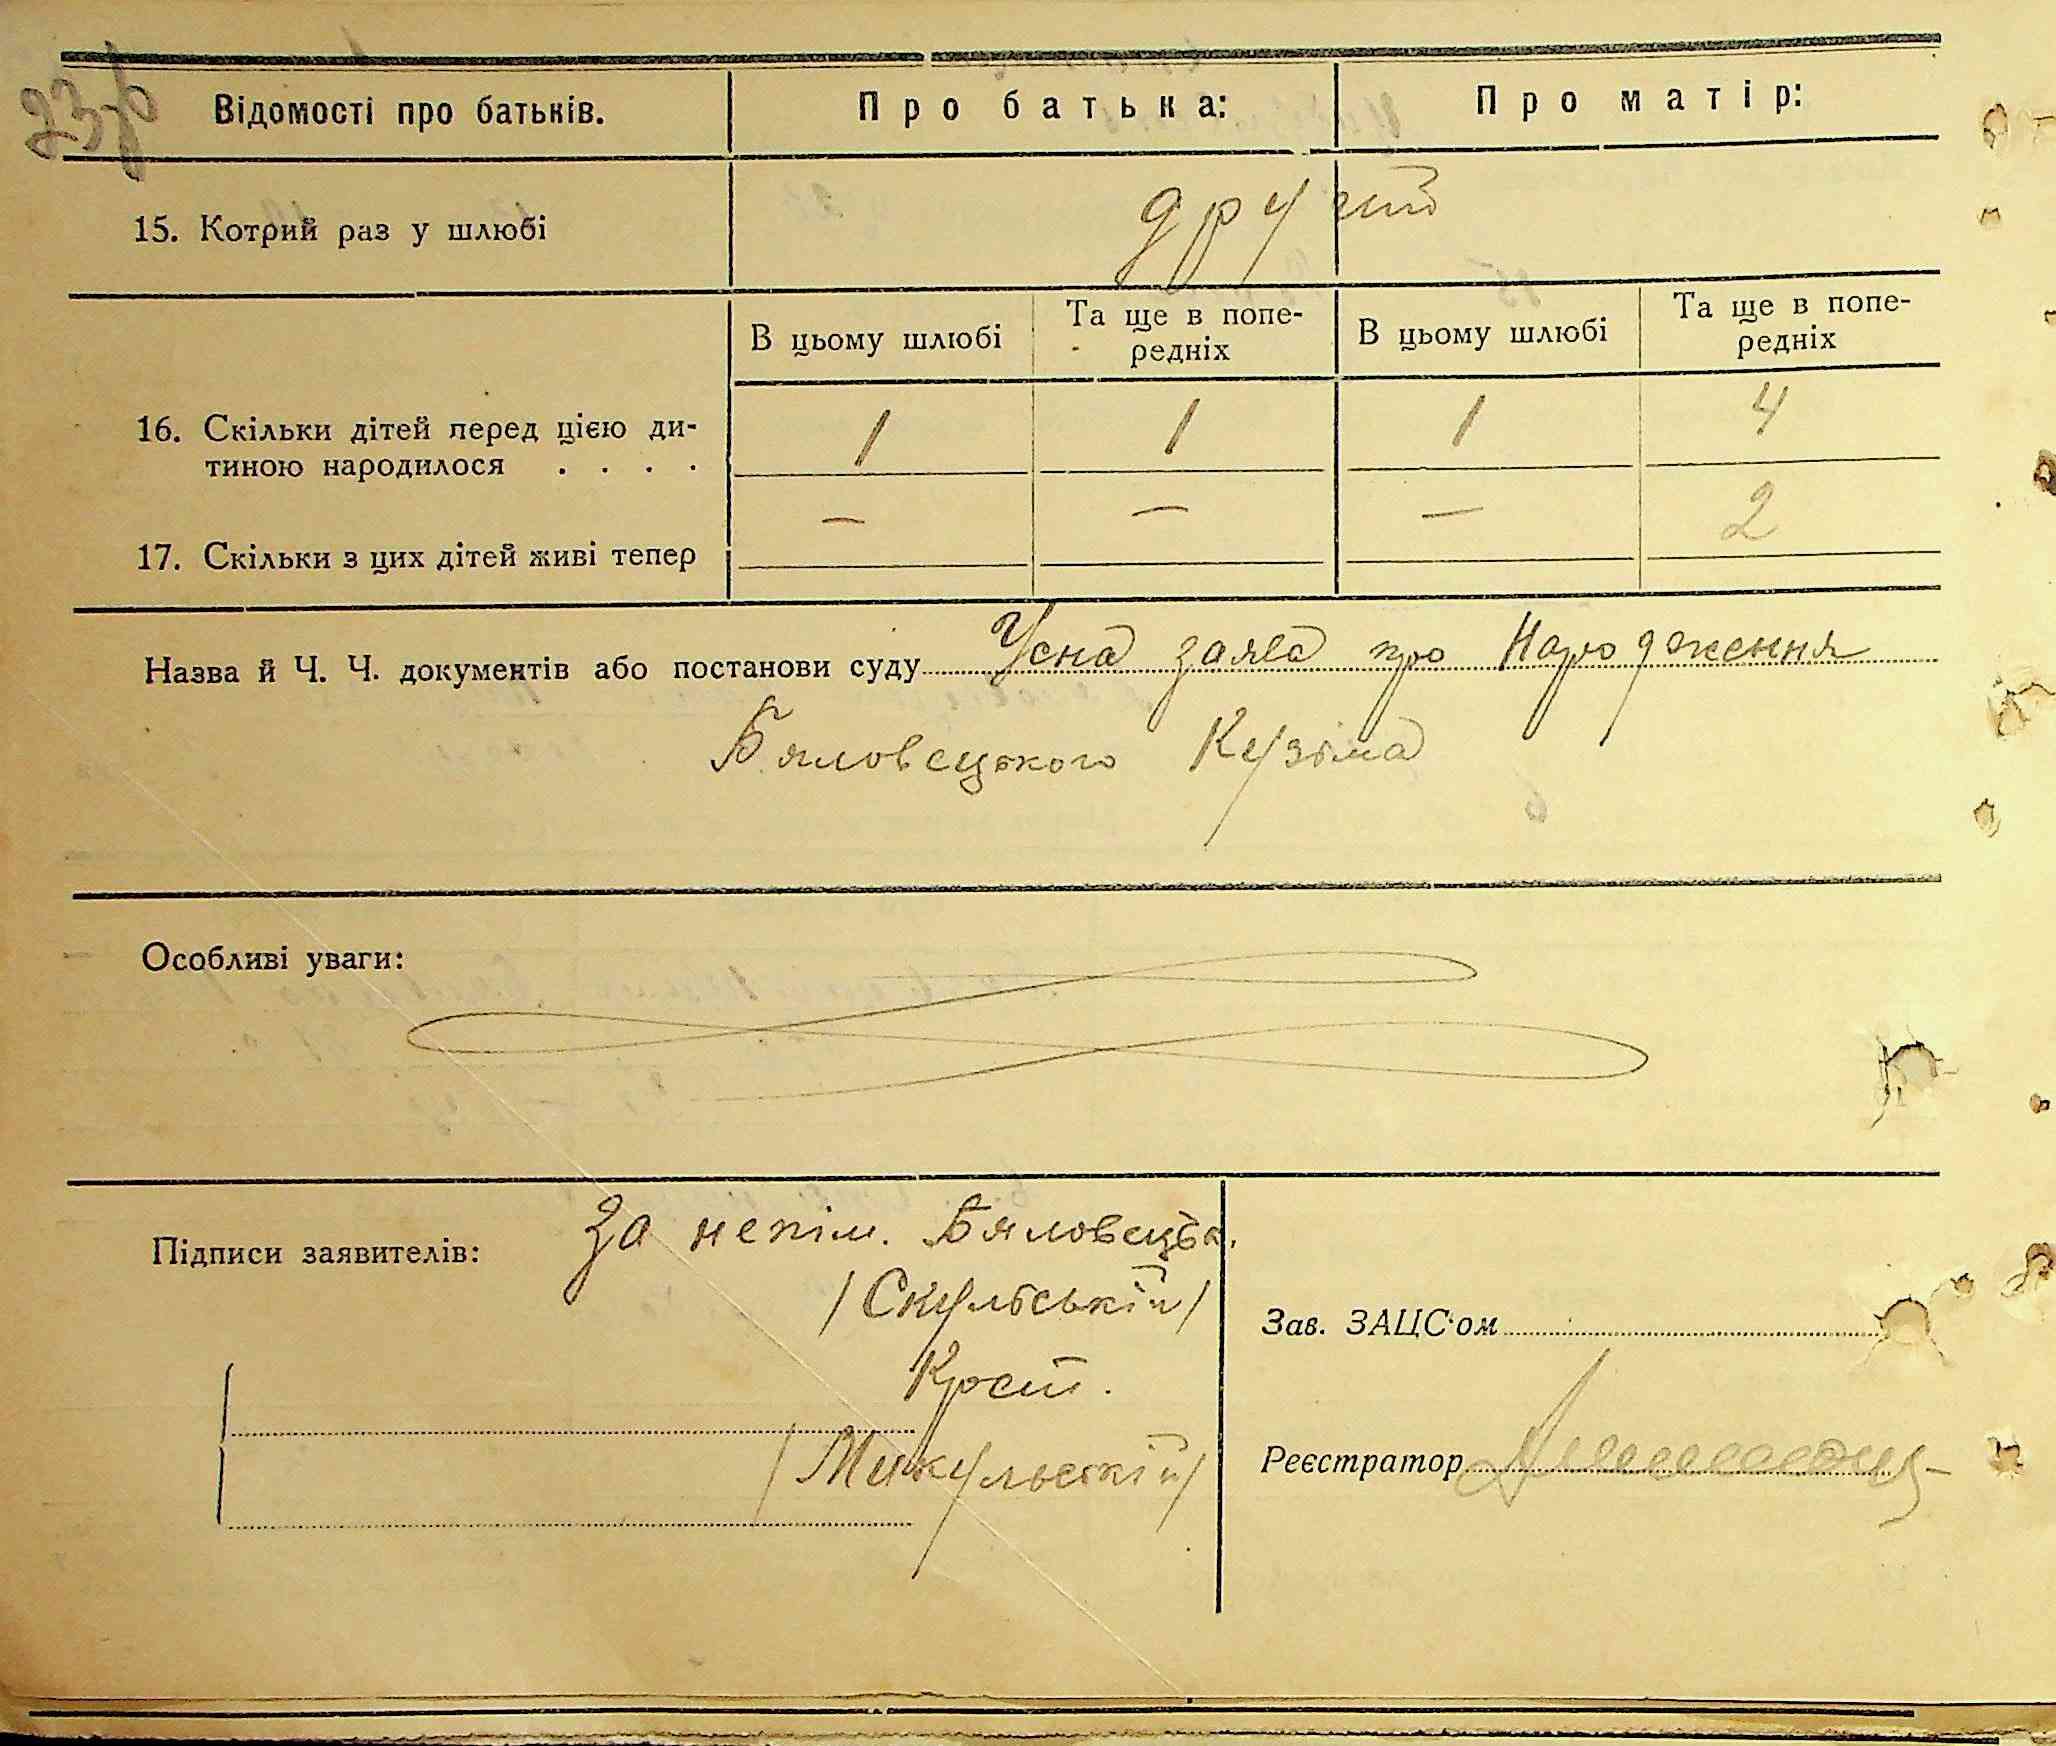 Відомості про батьків. Про батька: Про матір:
15. Котрий раз у шлюбі другий
В цьому шлюбі Та ще в попе- В цьому шлюбі Та ще в попе-
редніх редніх
16. Скільки дітей перед цією ди- 1 1 1 4
тиною народилося . . . .
17. Скільки з цих дітей живі тепер — — — 2
Назва й Ч. Ч. документів або постанови суду Усна заява про Народження
Бяловецького Кузьма
Особливі уваги:
Підписи заявителів: За непісм. Бяловецьк.
/Скульський/
Зав. ЗАЦС'ом
Крест.
/Микульский/
Реєстратор